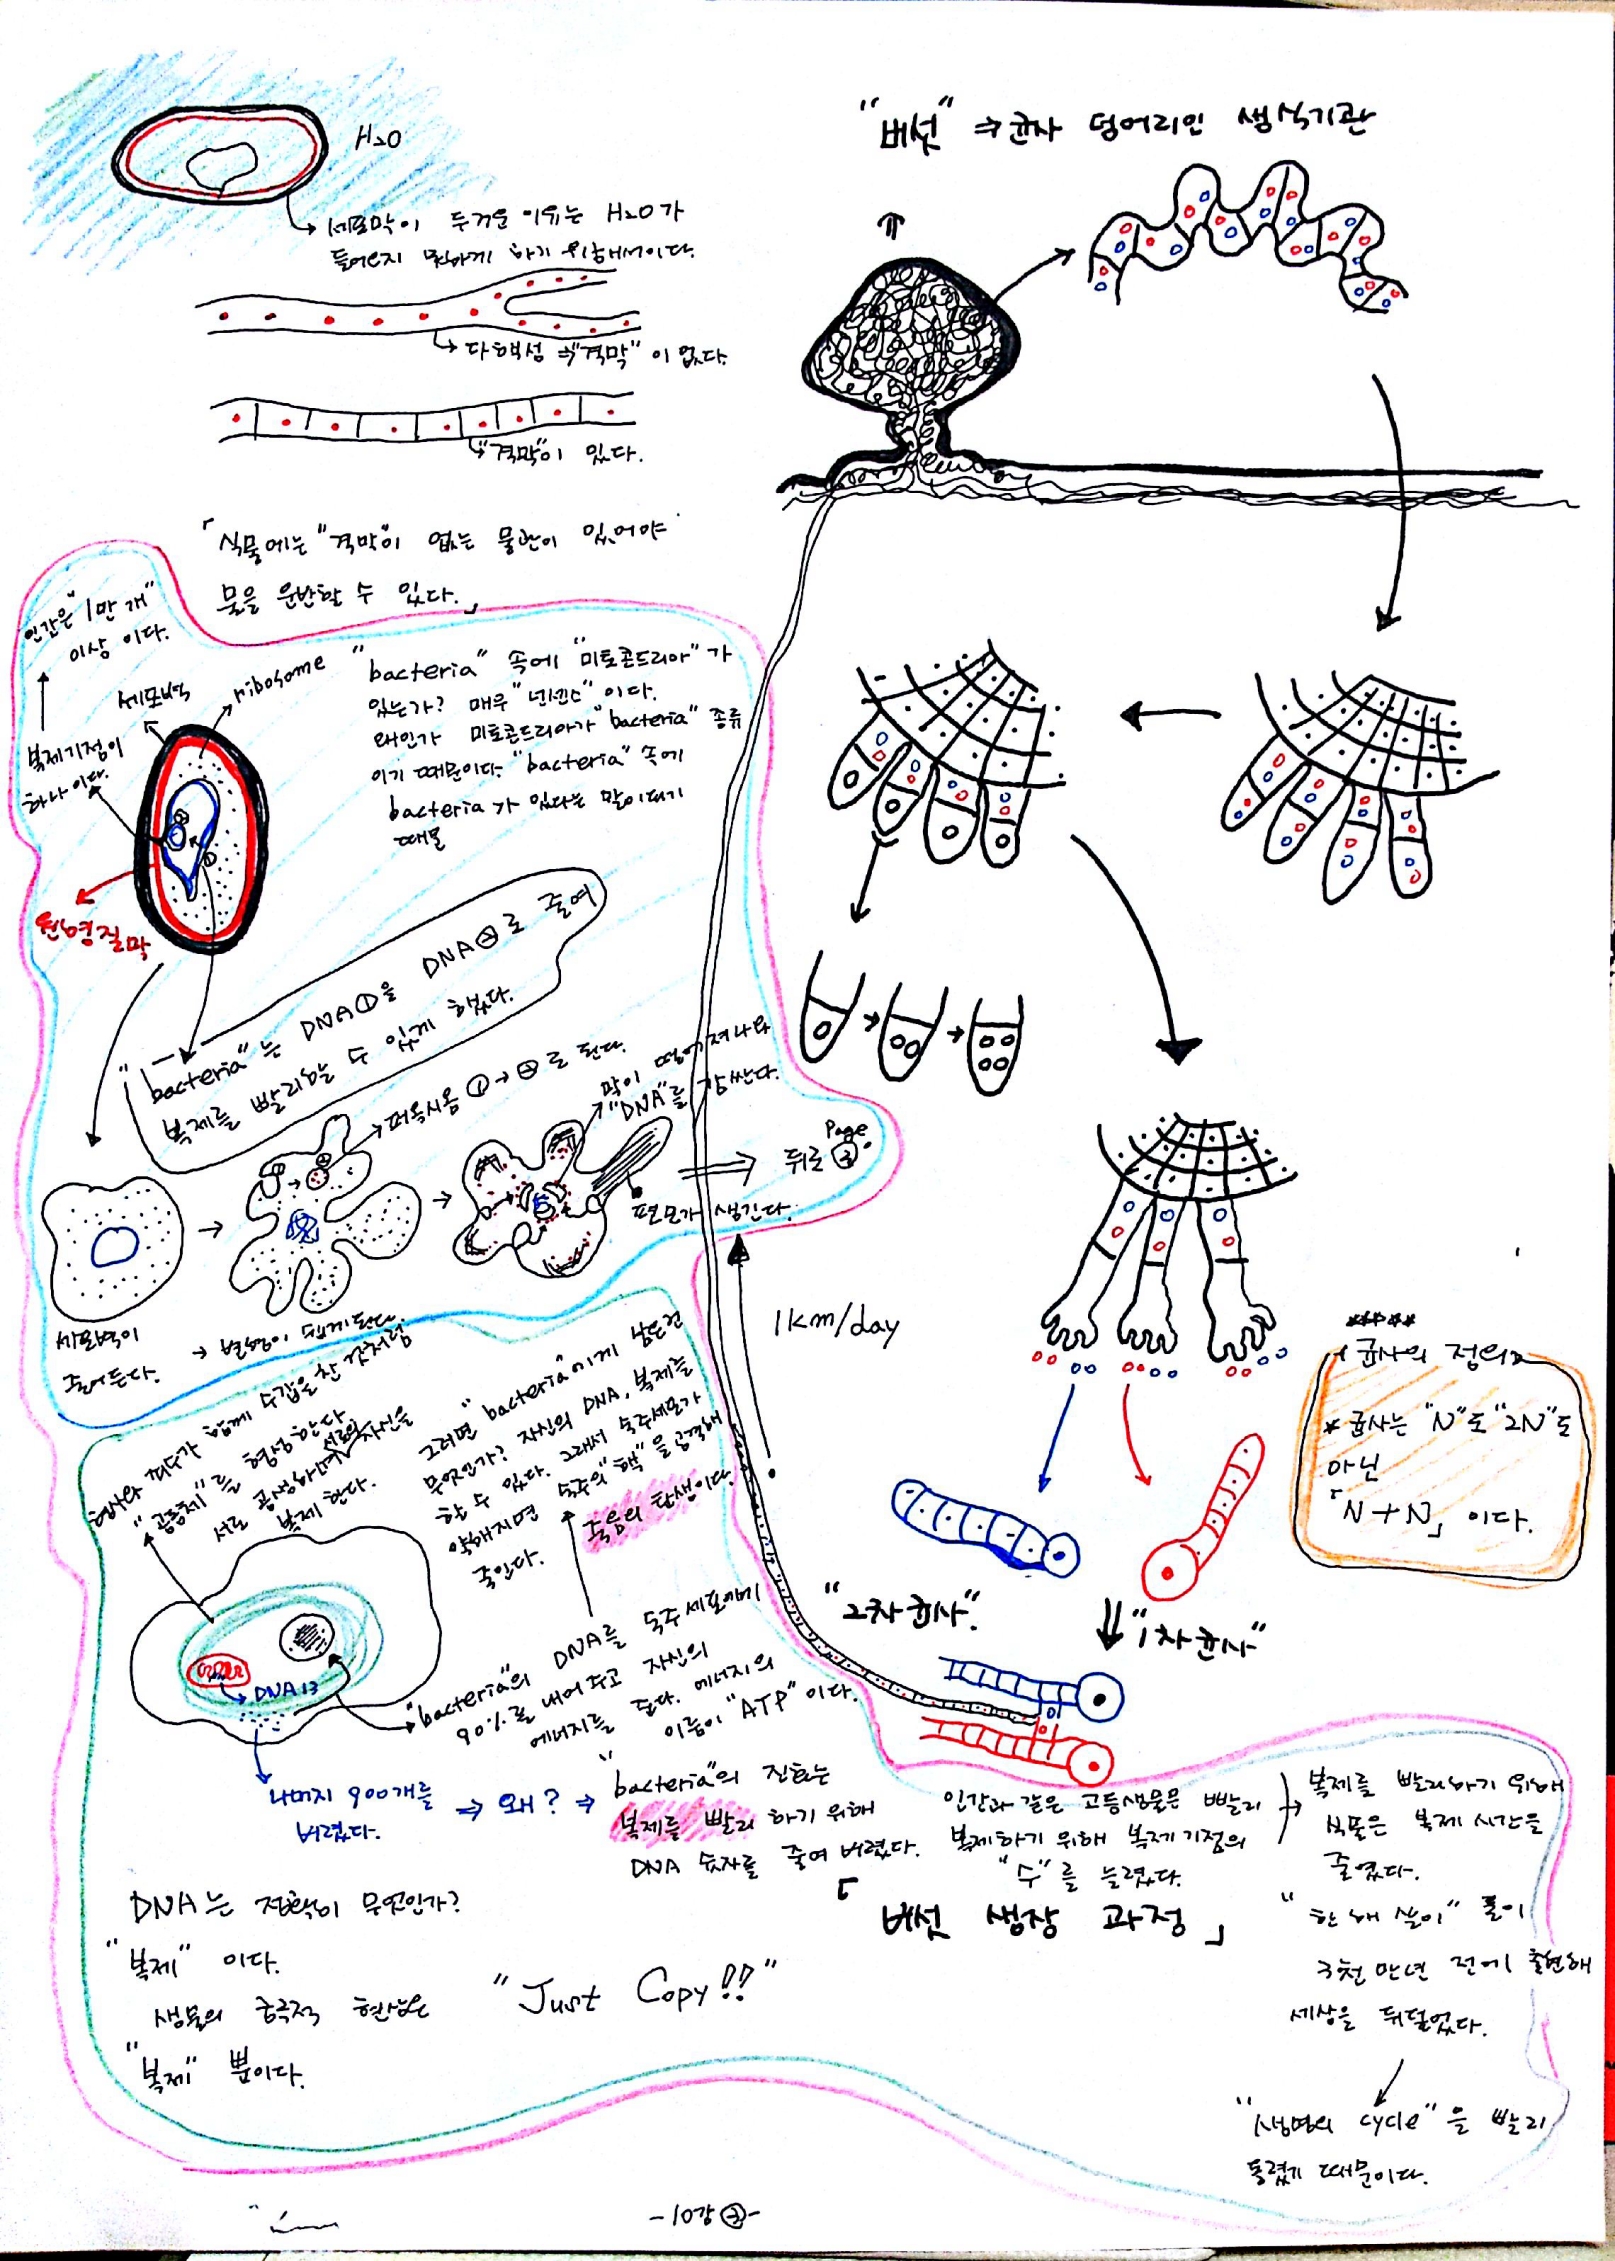 H₂O
세포막이 두꺼운 이유는 H₂O가
들어오지 못하게 하기 위해서이다.
다핵성 ⇒ "격막"이 없다.
"격막"이 있다.
「식물에는 "격막"이 없는 물관이 있어야
물을 운반할 수 있다.」
"버섯" ⇒ 균사 덩어리인 생식기관
인간은 "1만 개"
이상 이다.
복제기점이
하나이다.
세포벽
ribosome
원형질막
"bacteria" 속에 "미토콘드리아"가
있는가? 매우 "넌센스"이다.
왜인가 미토콘드리아가 "bacteria" 종류
이기 때문이다. "bacteria" 속에
bacteria가 있다는 말이되기
때문
①
"bacteria"는 DNA①을 DNA②로 줄여
복제를 빨리할 수 있게 했다.
퍼옥시좀 ①→②로 된다.
막이 떨어져나와
"DNA"를 감싼다.
편모가 생긴다.
뒤로 Page ③
세포벽이
줄어든다.
→ 변형이 쉽게된다.
1km/day
핵사와 째주가 함께 수갑을 찬 것처럼
"공동체"를 형성한다.
서로 공생하며 서로의 자신을
복제 한다.
그러면 "bacteria"에게 남은건
무엇인가? 자신의 DNA, 복제를
할 수 있다. 그래서 숙주세포가
약해지면 숙주의 "핵"을 공격해
죽인다.
죽음의 탄생이다.
DNA 13
"bacteria"의 DNA를 숙주세포에게
90%를 내어주고 자신의
에너지를 준다. 에너지의
이름이 "ATP"이다.
나머지 900개를
버렸다.
⇒ 왜? ⇒
"bacteria"의 진화는
복제를 빨리 하기 위해
DNA 숫자를 줄여 버렸다.
인간과 같은 고등생물은 빨리
복제하기 위해 복제기점의
"수"를 늘렸다.
복제를 빨리하기 위해
식물은 복제 시간을
줄였다.
"한해 살이" 풀이
3천 만년 전에 출현해
세상을 뒤덮었다.
"생명의 cycle"을 빨리
돌렸기 때문이다.
*****
「균사의 정의」
* 균사는 "N"도 "2N"도
아닌
「N+N」이다.
"2차균사"
"1차균사"
「버섯 생장 과정」
DNA는 전략이 무엇인가?
"복제" 이다.
생물의 궁극적 현상은
"복제" 뿐이다.
"Just Copy!!"
-10강 ②-